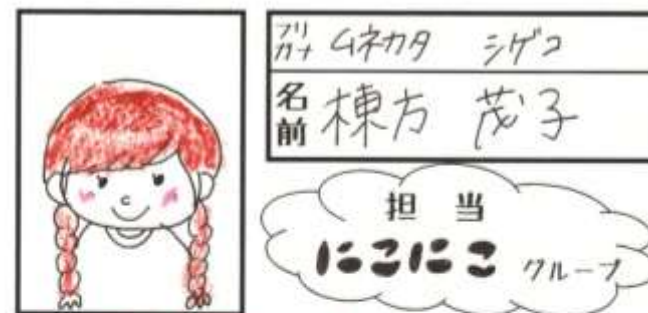 フリガナ ムネカタ シゲコ
名前 棟方 茂子
担当
にこにこ グループ